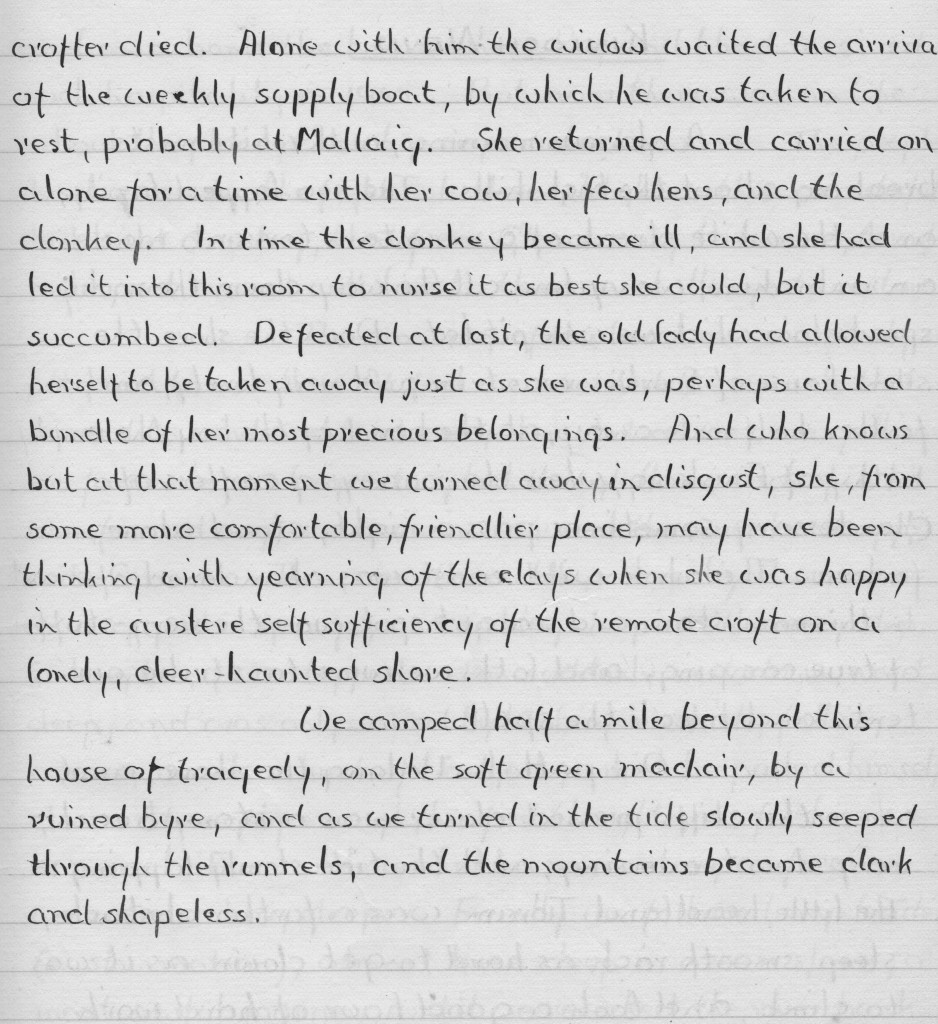 crofter died. Alone with him the widow waited the arriva
of the weekly supply boat, by which he was taken to
rest, probably at Mallaig. She returned and carried on
alone for a time with her cow, her few hens, and the
donkey. In time the donkey became ill, and she had
led it into this room to nurse it as best she could, but it
succumbed. Defeated at last, the old lady had allowed
herself to be taken away just as she was, perhaps with a
bundle of her most precious belongings. And who knows
but at that moment we turned away in disgust, she, from
some more comfortable, friendlier place, may have been
thinking with yearning of the days when she was happy
in the austere self sufficiency of the remote croft on a
lonely, deer-haunted shore.
We camped half a mile beyond this
house of tragedy, on the soft green machair, by a
ruined byre, and as we turned in the tide slowly seeped
through the runnels, and the mountains became dark
and shapeless.